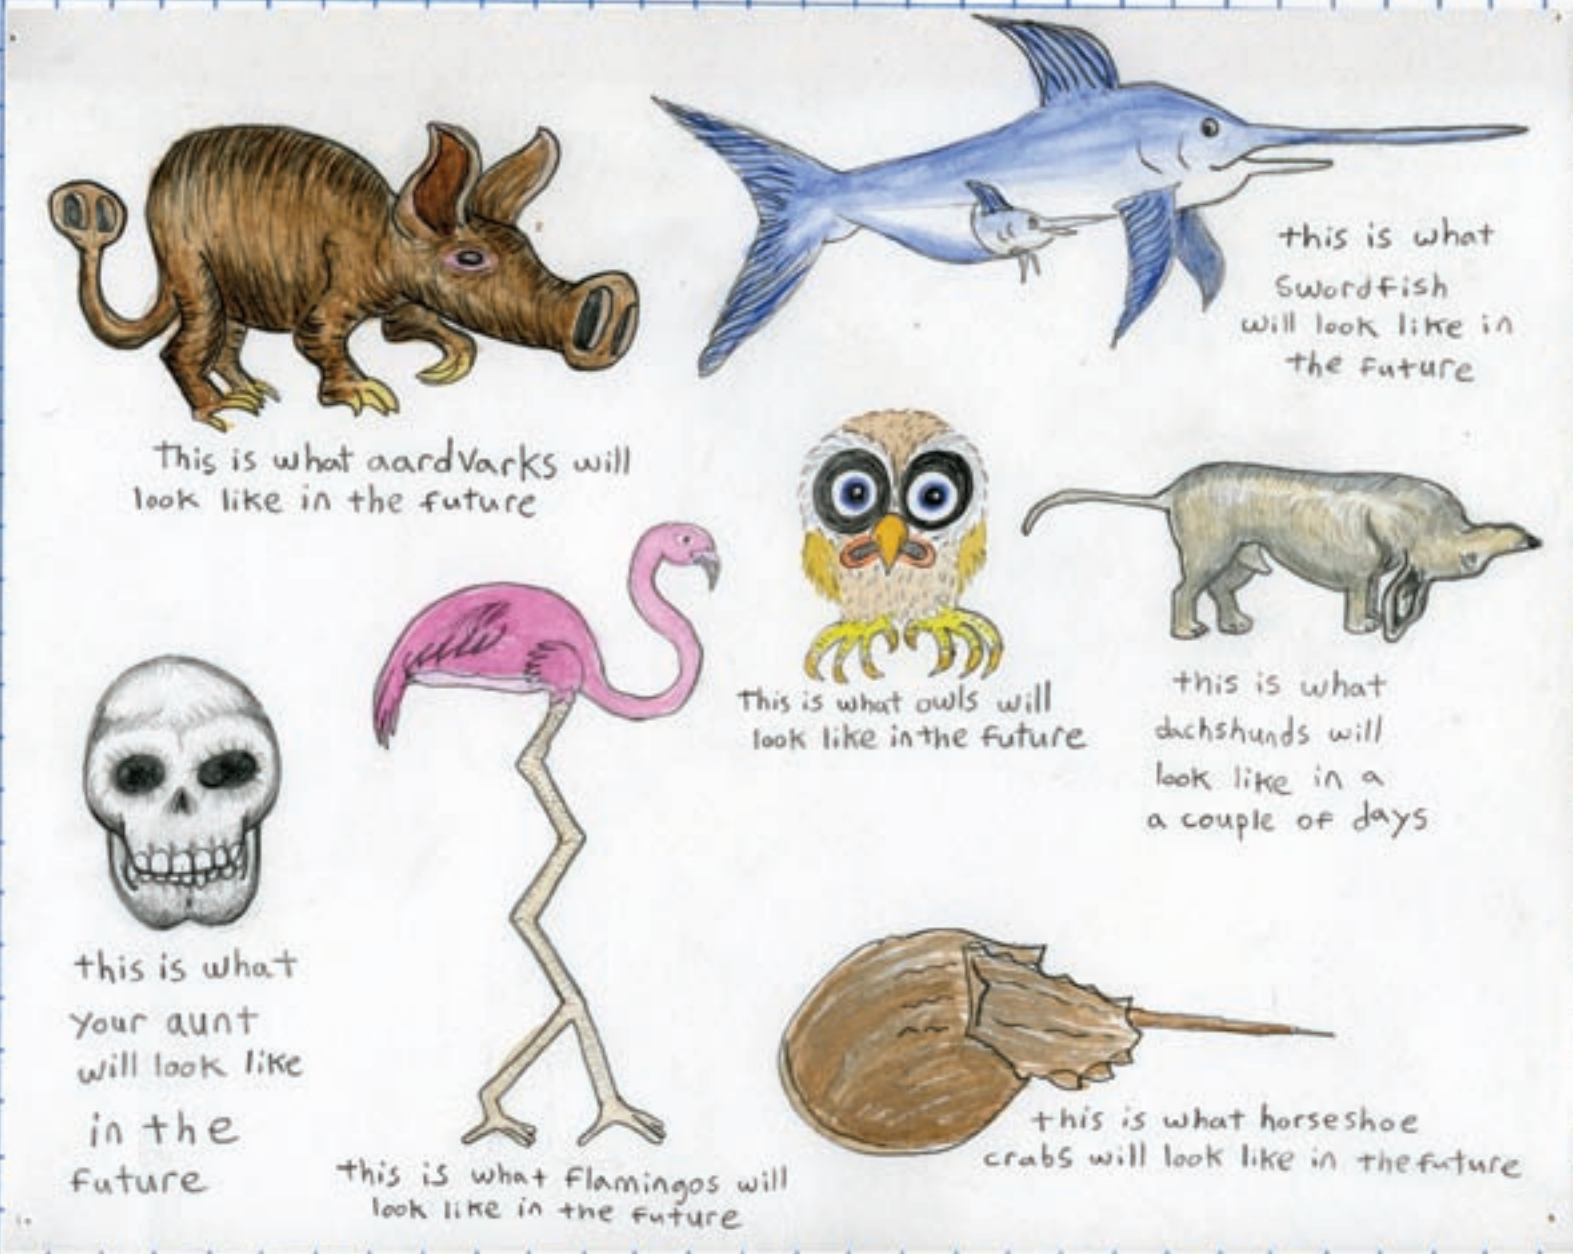 this is what
swordfish
will look like in
the future
This is what aardvarks will
look like in the future
This is what owls will
look like in the future
this is what
dachshunds will
look like in a
a couple of days
this is what
your aunt
will look like
in the
future
this is what flamingos will
look like in the future
this is what horseshoe
crabs will look like in the future